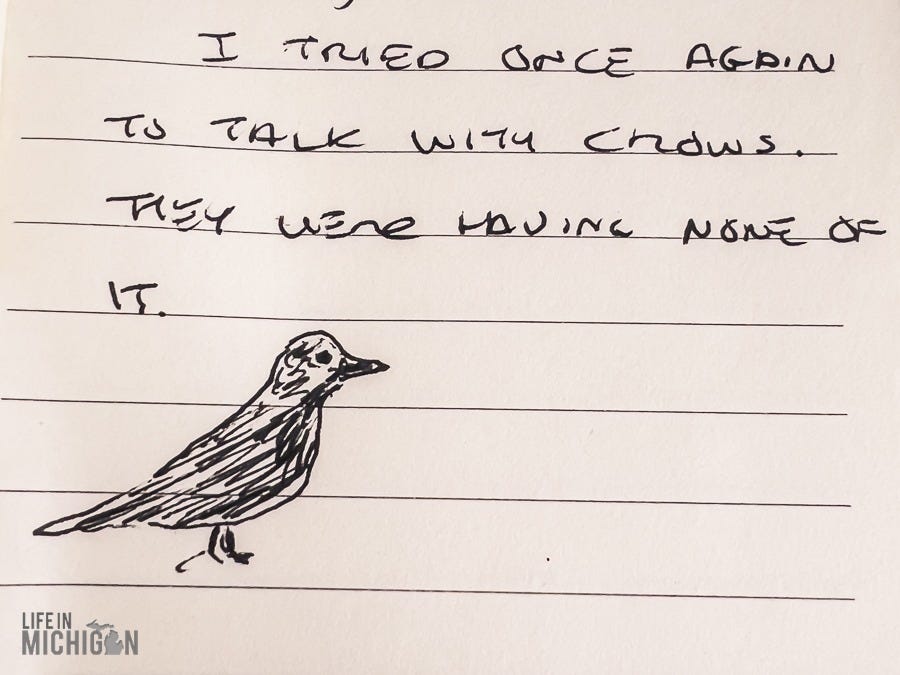 I TRIED ONCE AGAIN
TO TALK WITH CROWS.
THEY WERE HAVING NONE OF
IT.
LIFE IN
MICHIGAN